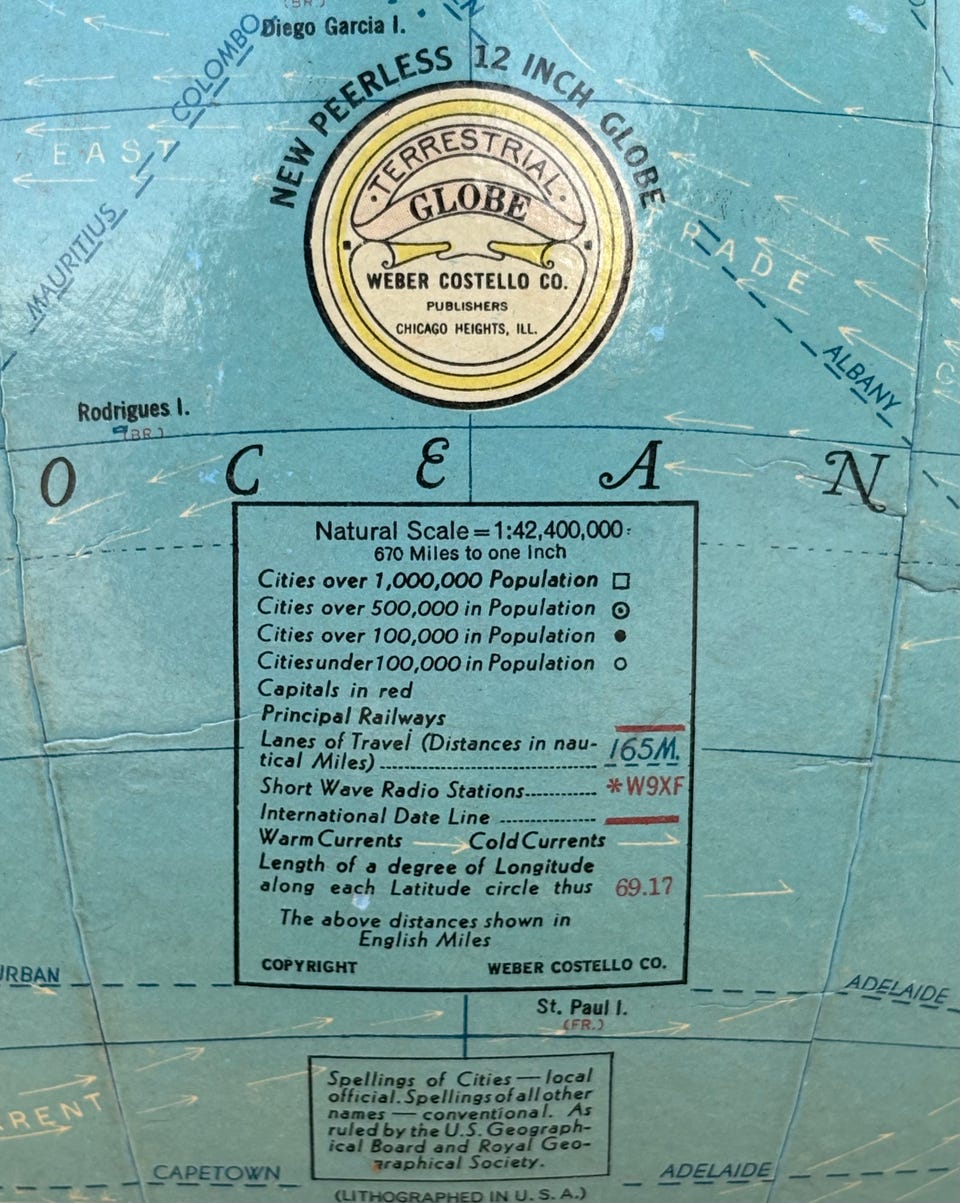 (BR.)
Diego Garcia I.
COLOMBO
NEW PEERLESS 12 INCH GLOBE
EAST
TERRESTRIAL
GLOBE
MAURITIUS
TRADE
WEBER COSTELLO CO.
PUBLISHERS
CHICAGO HEIGHTS, ILL.
ALBANY
Rodrigues I.
(BR.)
OCEAN
Natural Scale=1:42,400,000
670 Miles to one Inch
Cities over 1,000,000 Population
Cities over 500,000 in Population
Cities over 100,000 in Population
Cities under 100,000 in Population
Capitals in red
Principal Railways
Lanes of Travel (Distances in nau-
tical Miles) 165M.
Short Wave Radio Stations *W9XF
International Date Line
Warm Currents Cold Currents
Length of a degree of Longitude
along each Latitude circle thus 69.17
The above distances shown in
English Miles
COPYRIGHT WEBER COSTELLO CO.
URBAN
ADELAIDE
St. Paul I.
(FR.)
Spellings of Cities — local
official. Spellings of all other
names — conventional. As
ruled by the U.S. Geograph-
ical Board and Royal Geo-
graphical Society.
RENT
CAPETOWN
ADELAIDE
(LITHOGRAPHED IN U.S.A.)